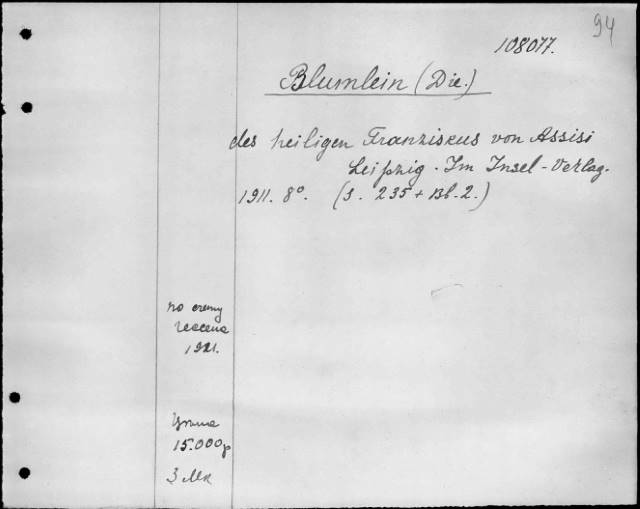 94
108077.
Blumlein (Die.)
des heiligen Franziskus von Assisi
Leipzig. Im Insel-Verlag.
1911. 8°. (S. 235 + Bl. 2.)
по счету
1921.
Цена
15.000р
3 Мк